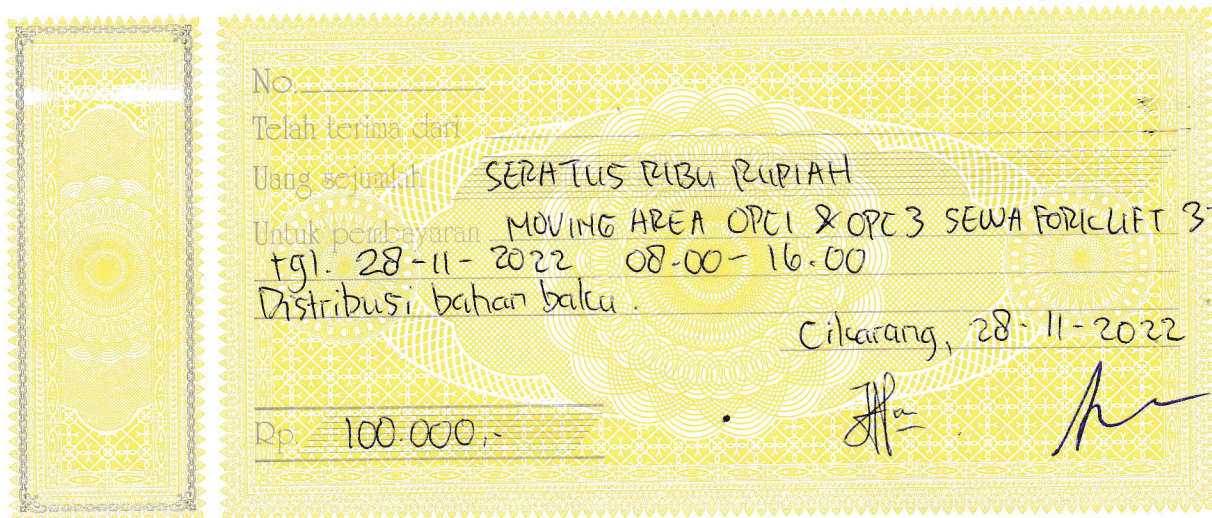 No.
Telah terima dari
Uang sejumlah SERATUS RIBU RUPIAH
Untuk pembayaran MOVING AREA OPC1 & OPC3 SEWA FORKLIFT 3
tgl. 28-11-2022 08.00-16.00
Distribusi bahan baku.
Cikarang, 28-11-2022
Rp. 100.000,-